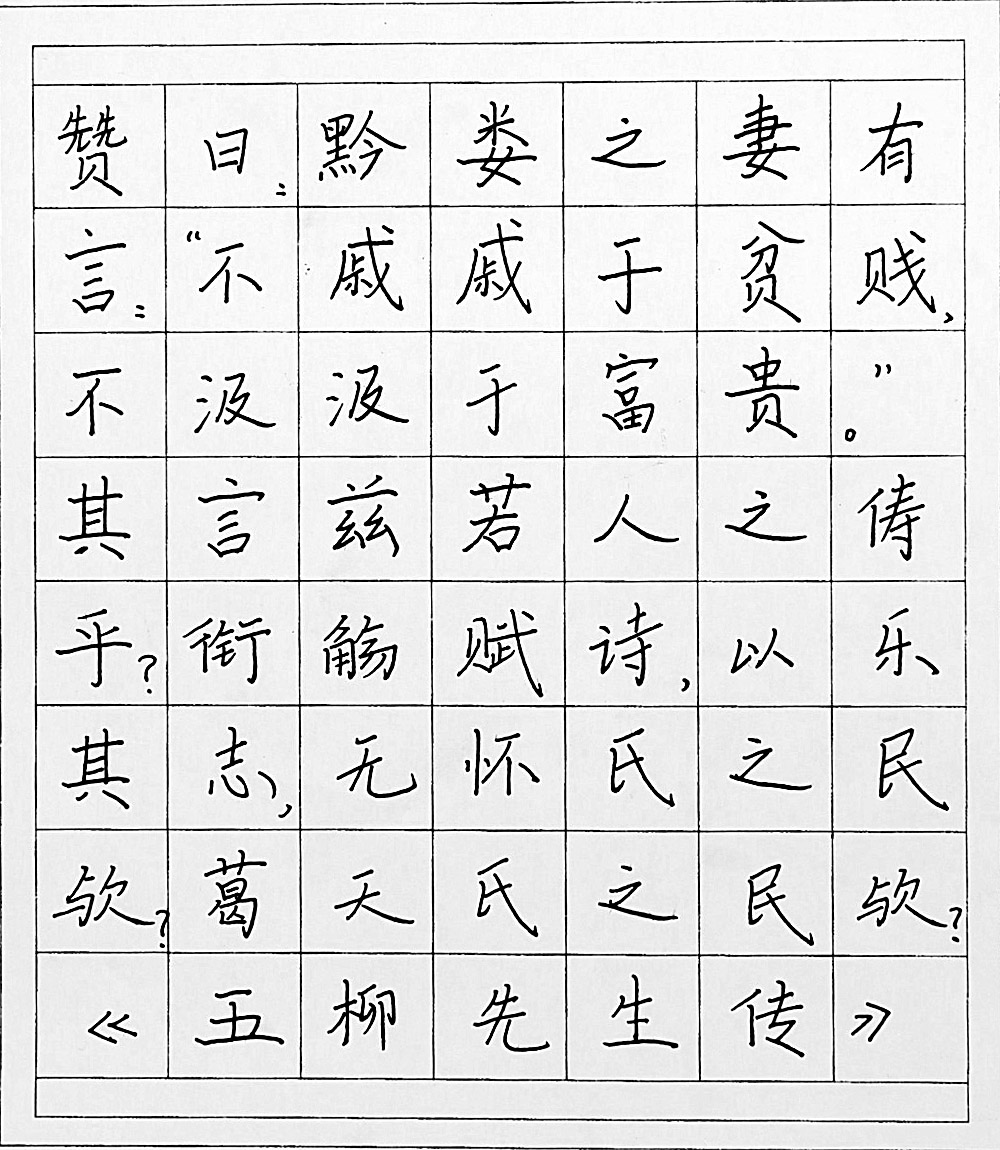 赞曰：黔娄之妻有
言："不戚戚于贫贱，
不汲汲于富贵。"
其言兹若人之俦
乎？衔觞赋诗，以乐
其志，无怀氏之民
欤？葛天氏之民欤？
《五柳先生传》